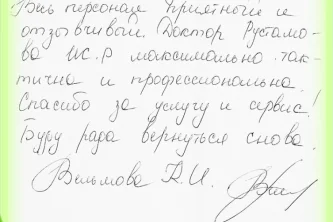 Весь персонал приятный и
отзывчивый. Доктор Рустамо-
ва Ис.Р максимально так-
тична и профессиональна.
Спасибо за услугу и сервис!
Буду рада вернуться снова.
Вельмова К.И.